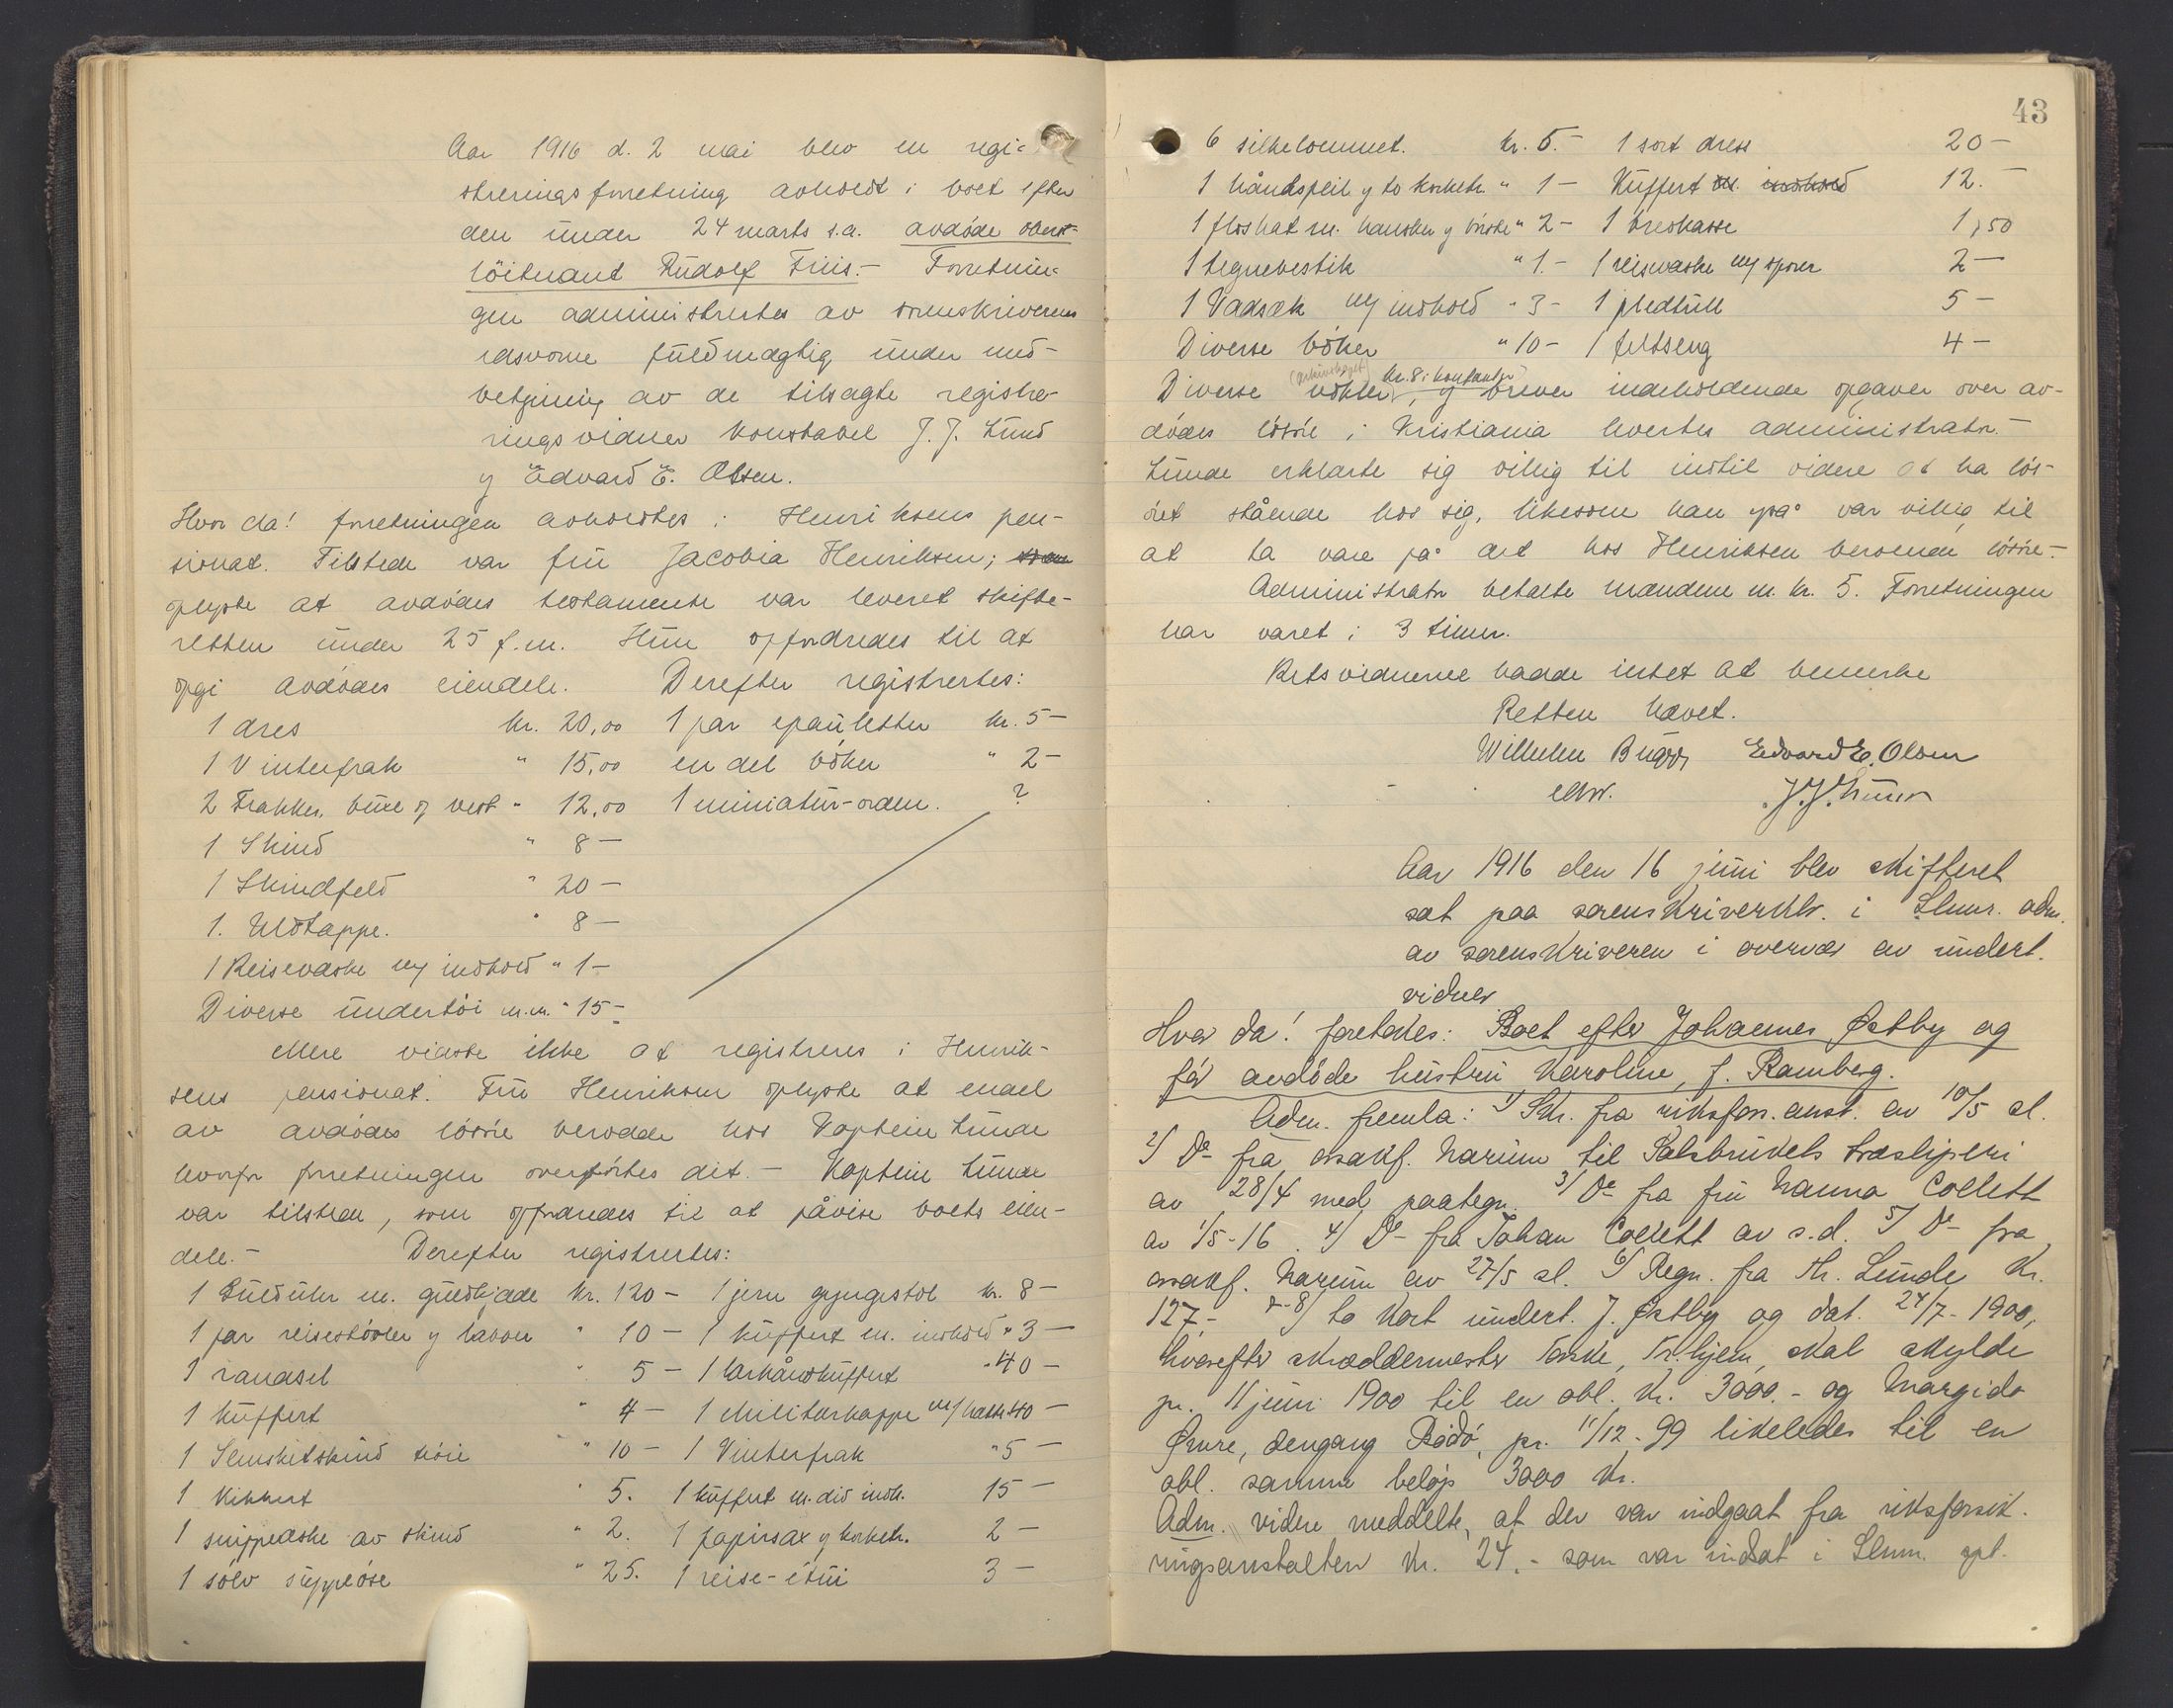 Aar 1916 d. 2 mai blev en regi-
streringsforretning avholdt i boet efter
den under 24 marts s.a. avdøde oberst-
löitnant Rudolf Friis.- Forretnin-
gen administrertes av sorenskriverens
edsvorne fuldmægtig under med-
betjening av de tilsagte registre-
ringsvidner konstabel J. J. Lund
og Edvard E. Olsen.
Hvor da! forretningen avholdtes i Henriksens pen-
sionat. Tilstede var fru Jacobia Henriksen; som
oplyste at avdødes testamente var leveret skifte-
retten under 25 f.m. Hun opfordredes til at
opgi avdødes eiendele. Derefter registrertes:
1 dres kr. 20,00 1 par epauletter kr. 5-
1 Vinterfrak " 15,00 en del bøker " 2-
2 Frakker, buxe og vest " 12,00 1 miniatur-orden. ?
1 Skind " 8-
1 Skindfeld " 20-
1. Uldtæppe. " 8-
1 Reisevæske m/ indhold " 1-
Diverse undertöi m.m. " 15-
Mere vidste ikke at registreres i Henrik-
sens pensionat. Fru Henriksen oplyste at endel
av avdødes lösöre berodde hos Kaptein Lunde
hvorfor forretningen overførtes dit.- Kaptein Lunde
var tilstede, som opfordredes til at påvise boets eien-
dele.- Derefter registrertes:
1 Gulduhr m. guldkjæde kr. 120- 1 jern gyngestol kr. 8-
1 par reisestövler og laboer " 10- 1 kuffert m. indhold " 3-
1 randsel " 5- 1 lærhåndkuffert " 40-
1 kuffert " 4- 1 Militærkappe m/ hætte 40-
1 Semsketskind tröie " 10- 1 Vinterfrak " 5-
1 kikkert " 5. 1 kuffert m. div indh. 15-
1 snippeæske av skind " 2. 1 papirsax og korketr. 2-
1 sölv suppeöse " 25. 1 reise-etui 3-
43
6 silkelommet. kr. 5.- 1 sort dress 20-
1 håndspeil og to korketr. " 1- Kuffert m. indhold 12.-
1 floshat m. hansker og börste " 2- 1 breskasse 1,50
1 tegnebestik " 1.- 1 reisevæske m/ sporer 2-
1 Vadsæk m/ indhold " 3- 1 pledtull 5-
Diverse böker " 10- 1 feltseng 4-
(arkivskapet) kr. 8 i kontanter
Diverse nökler, og brever indeholdende opgaver over av-
dödes lösöre i Kristiania levertes administrator.-
Lunde erklærte sig villig til indtil videre at ha lös-
öret stående hos sig, likesom han også var villig til
at ta vare på det hos Henriksen beroende lösöre.-
Administrator betalte mændene m. kr. 5. Forretningen
har varet i 3 timer.
Retsvidnerne hadde intet at bemerke
Retten hævet.
Wilhelm Bugge Edvard E. Olsen
edsv. J. J. Lund
Aar 1916 den 16 juni blev skifteret
sat paa sorenskriverktr. i Slmr. adm.
av sorenskriveren i overvær av undert.
vidner
Hvor da! foretokes: Boet efter Johannes Østby og
før avdöde hustru Karoline, f. Ramberg.
Adm. fremla: 1/ Skr. fra riksfors.anst. av 10/5 sl.
2/ Do fra orsakf. Narum til Salsbrukets træsliperi
av 28/4 med paategn. 3/ Do fra fru Nanna Collett
av 1/5-16. 4/ Do fra Johan Collett av s.d. 5/ Do fra
orsakf. Narum av 27/5 sl. 6/ Regn. fra Th. Lunde kr.
127,- 7-8/ to kort undert. J. Østby og dat. 24/7-1900,
hvorefter skræddermester Torske, Tr.hjem, skal skylde
pr. 11 juni 1900 til en obl. kr. 3000.- og Margido
Ørure, dengang Bodö, pr. 11/12-99 likeledes til en
obl. samme belöp 3000 kr.
Adm. videre meddelte, at der var indgaat fra riksforsik.
ringsanstalten kr. 24.- som var indsat i Slmr. spb.